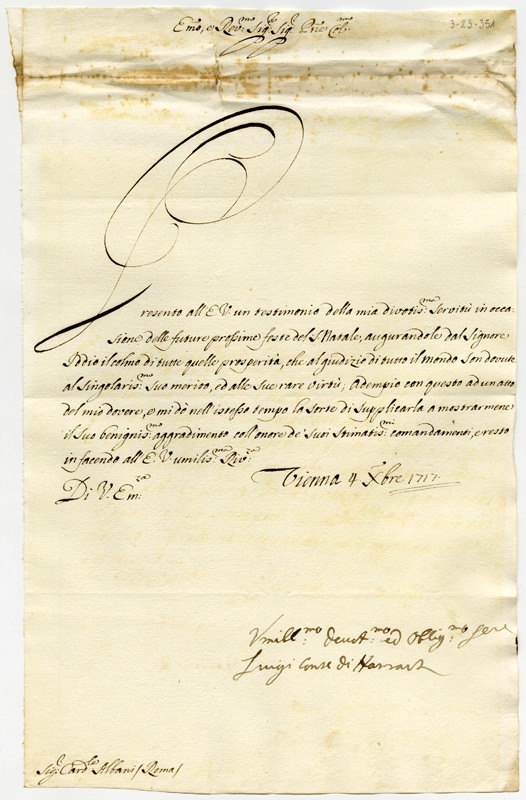 3-23-351
Em̃o, e Rev.mo Sig.re Sig.r Pñe Col.mo
Presento all'E.V. un testimonio della mia divotis.ma Servitù in occa-
sione delle future prossime feste del S. Natale, augurandole dal Signore
Iddio il colmo di tutte quelle prosperità, che al giudizio di tutto il mondo son dovute
al Singolaris.mo Suo merito, ed alle Sue rare virtù; adempio con questo ad un atto
del mio dovere, e mi dò nell'istesso tempo la sorte di supplicarla a mostrarmene
il Suo benignis.mo aggradimento coll'onore de' Suoi Stimatis.mi comandamenti, e resto
in facendo all'E.V. umilis.ma Riv.za
Di V. Em.za Vienna 4 Xbre 1717.
Vmill.mo devot.mo ed obblig.mo Serv
Luigi Conte di Harrach
Sig.r Card.le Albani / Roma /